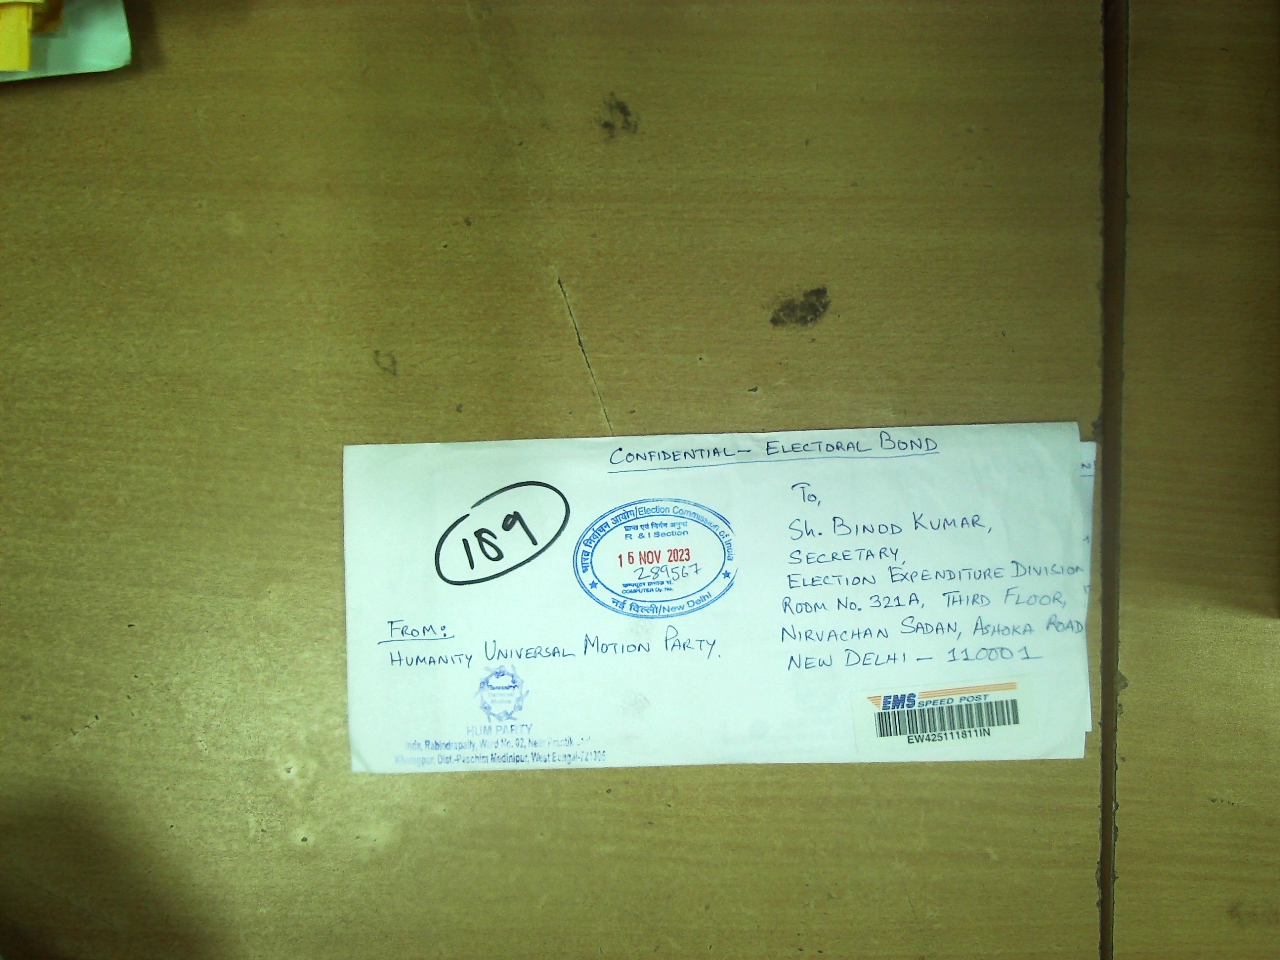 CONFIDENTIAL – ELECTORAL BOND
189
भारत निर्वाचन आयोग/Election Commission of India
R & I Section
16 NOV 2023
289567
COMPUTER Dy. No.
नई दिल्ली/New Delhi
To,
Sh. BINOD KUMAR,
SECRETARY,
ELECTION EXPENDITURE DIVISION
ROOM No. 321A, THIRD FLOOR,
NIRVACHAN SADAN, ASHOKA ROAD
NEW DELHI – 110001
FROM:
HUMANITY UNIVERSAL MOTION PARTY.
HUM PARTY
Inda, Rabindrapally, Ward No. 02, Near
Kharagpur, Dist.-Paschim Medinipur, West Bengal-721305
EMS SPEED POST
EW425111811IN